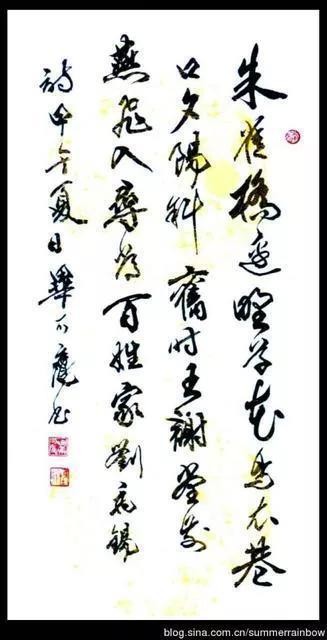 朱雀橋邊野草花烏衣巷
口夕陽斜舊时王謝堂前
燕飛入尋常百姓家劉禹錫
詩甲午夏日畢书
blog.sina.com.cn/summerrainbow